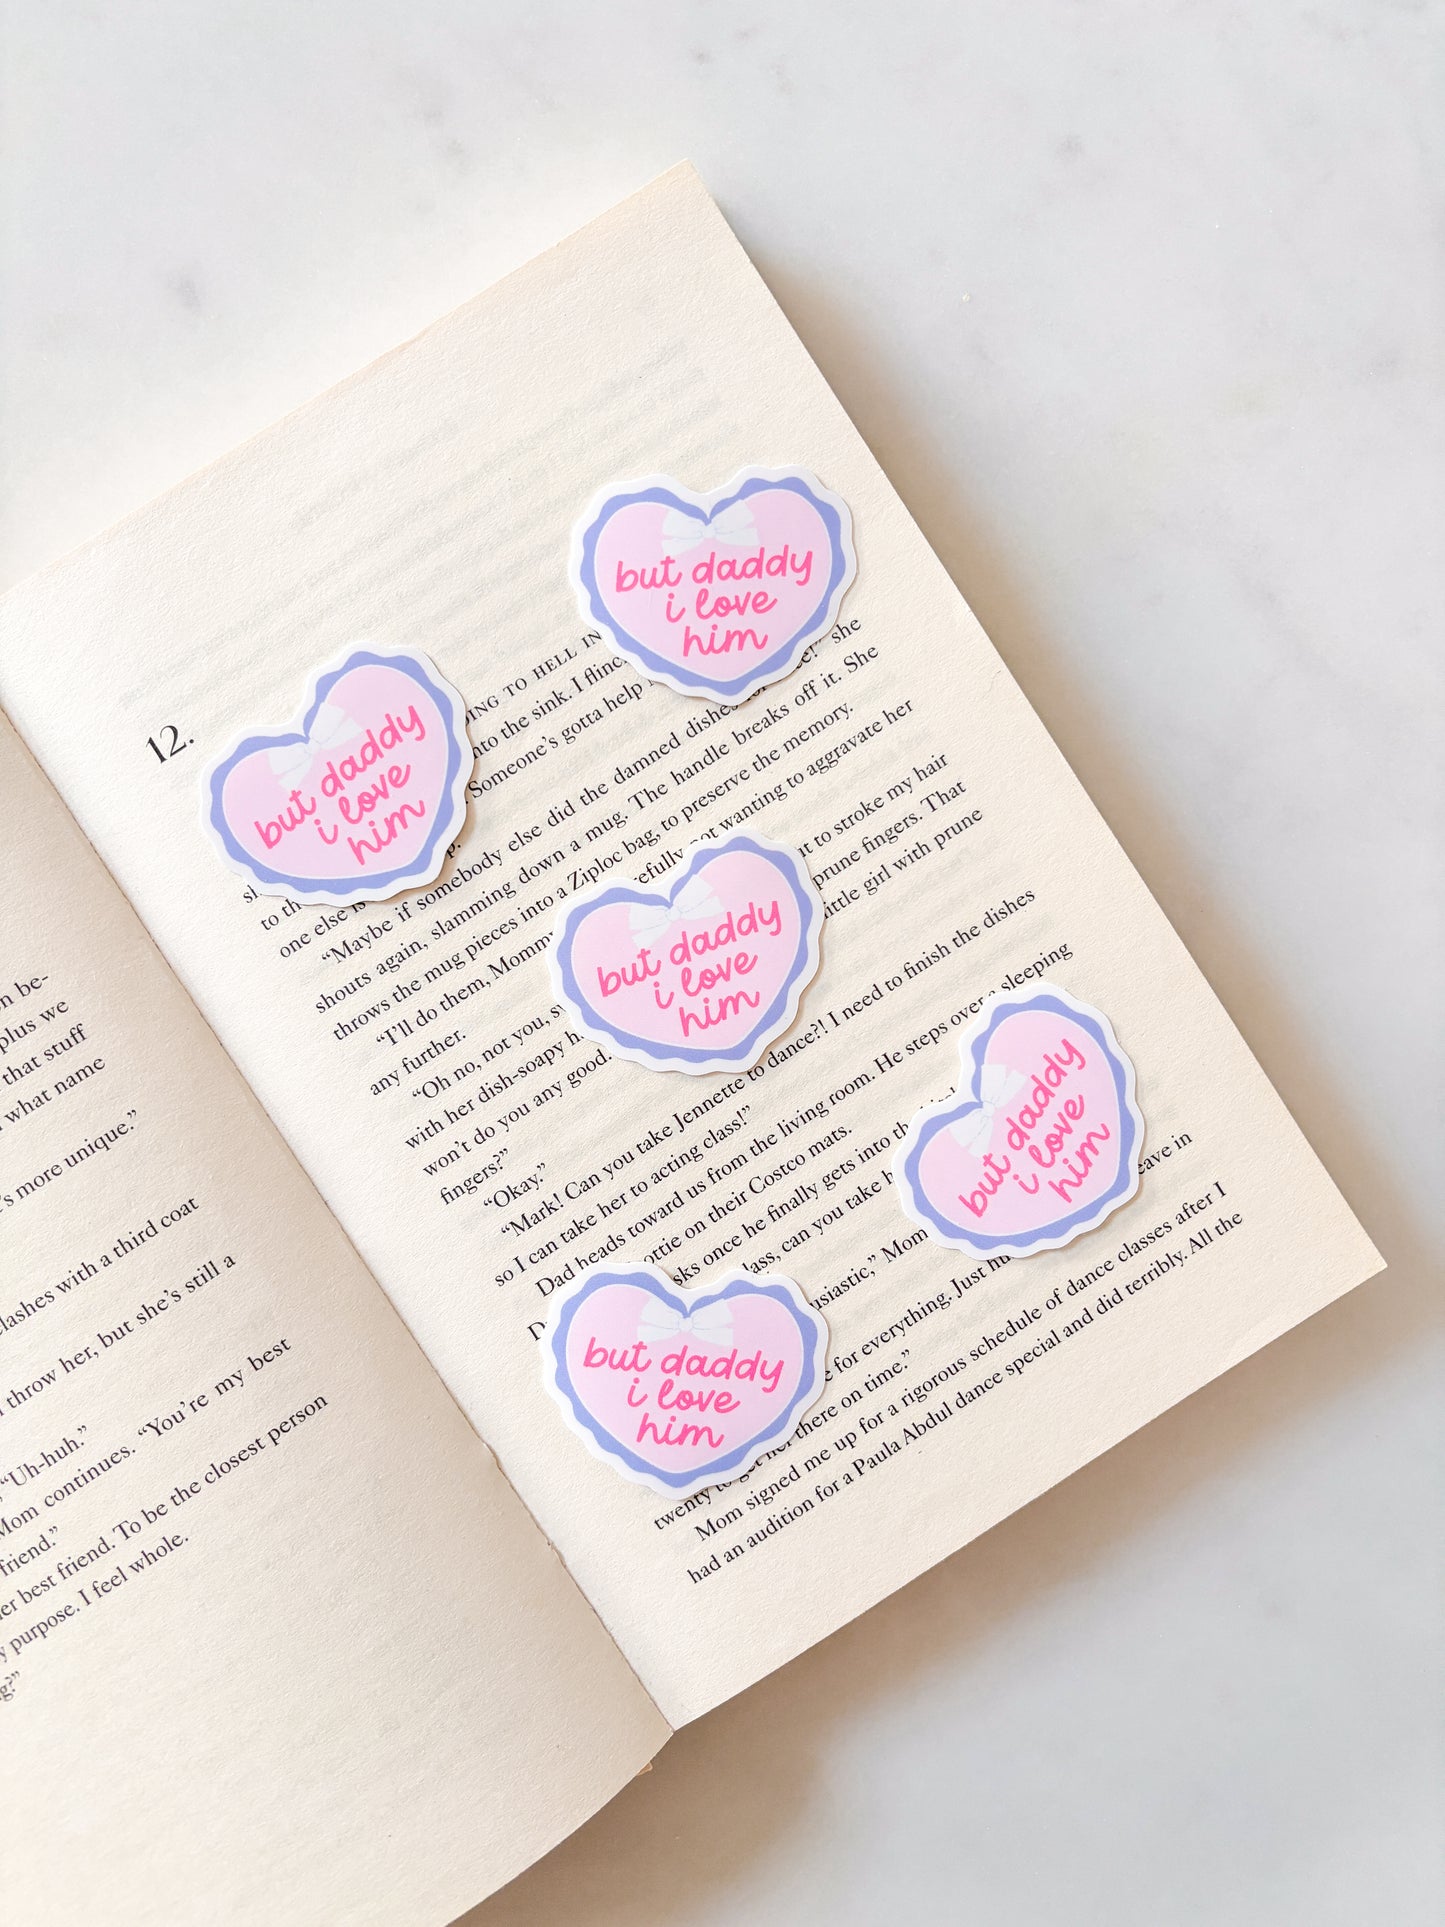 n be-
plus we
that stuff
what name
's more unique."
lashes with a third coat
throw her, but she's still a
"Uh-huh."
Mom continues. "You're my best
friend."
er best friend. To be the closest person
y purpose. I feel whole.
g?"
12.
ING TO HELL IN
nto the sink. I flinc
Someone's gotta help
she
to th
one else is
"Maybe if somebody else did the damned dishes
shouts again, slamming down a mug. The handle breaks off it. She
throws the mug pieces into a Ziploc bag, to preserve the memory.
"I'll do them, Mommy
refully not wanting to aggravate her
any further.
"Oh no, not you, s
ut to stroke my hair
with her dish-soapy h
prune fingers. That
won't do you any good.
little girl with prune
fingers?"
"Okay."
"Mark! Can you take Jennette to dance?! I need to finish the dishes
so I can take her to acting class!"
Dad heads toward us from the living room. He steps over a sleeping
ottie on their Costco mats.
D
sks once he finally gets into th
lass, can you take h
eave in
usiastic," Mom
e for everything. Just hu
twenty to get her there on time."
Mom signed me up for a rigorous schedule of dance classes after I
had an audition for a Paula Abdul dance special and did terribly. All the
but daddy
i love
him
but daddy
i love
him
but daddy
i love
him
but daddy
i love
him
but daddy
i love
him